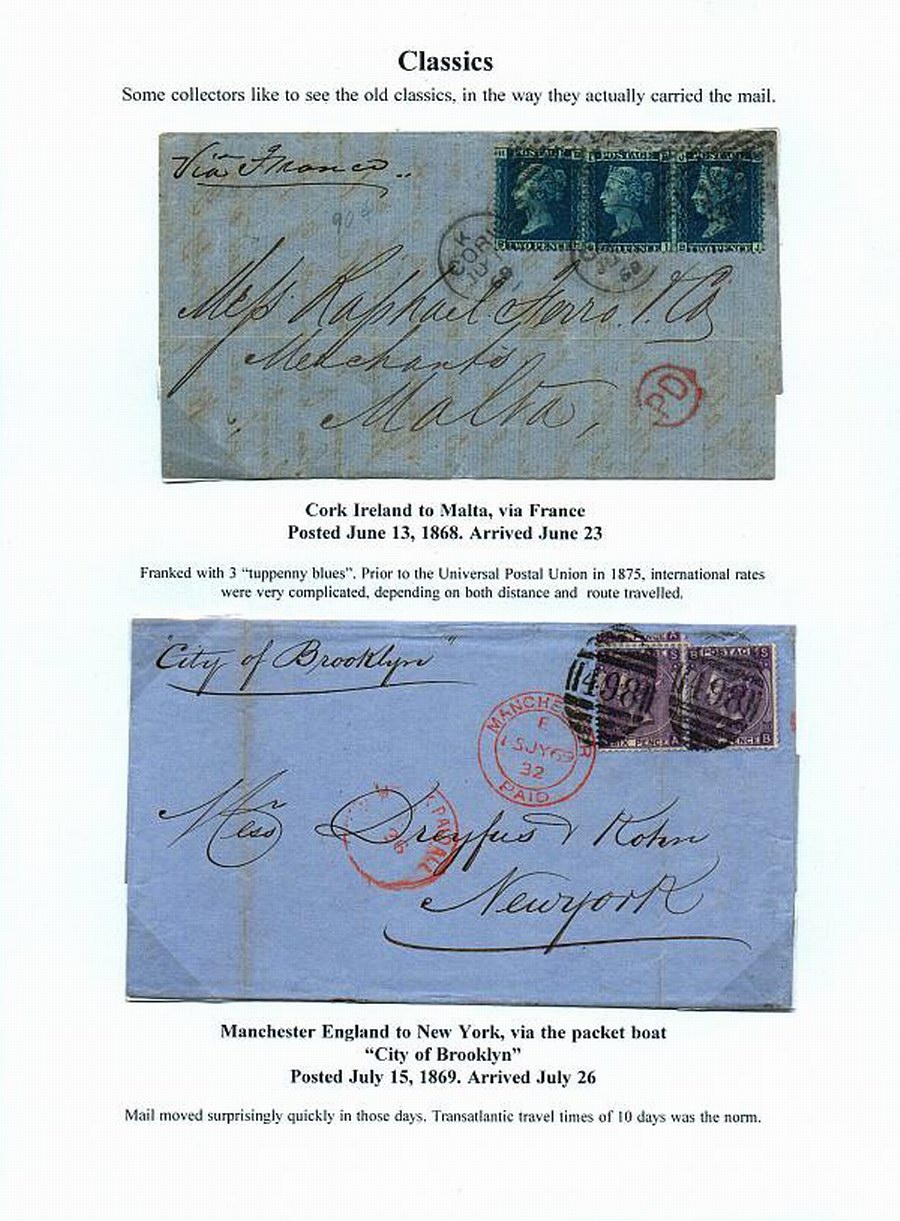 Classics
Some collectors like to see the old classics, in the way they actually carried the mail.
Via France
90
POSTAGE POSTAGE POSTAGE
TWO PENCE TWO PENCE TWO PENCE
CORK
68
Mess Raphael Ferro & Co
Merchants
Malta,
PD
Cork Ireland to Malta, via France
Posted June 13, 1868. Arrived June 23
Franked with 3 “tuppenny blues”. Prior to the Universal Postal Union in 1875, international rates
were very complicated, depending on both distance and route travelled.
"City of Brooklyn"
POSTAGE
498 498
SIX PENCE PENCE
MANCHESTER
F
15 JY 69
32
PAID
PAID ALL
26
Messrs Dreyfus & Kohn
Newyork
Manchester England to New York, via the packet boat
“City of Brooklyn”
Posted July 15, 1869. Arrived July 26
Mail moved surprisingly quickly in those days. Transatlantic travel times of 10 days was the norm.